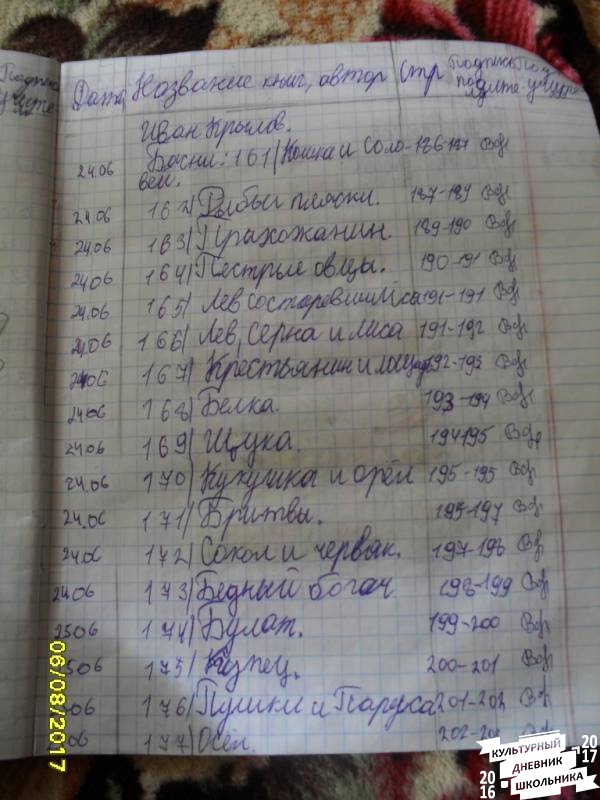 Подпись учите
Дата Название книг, автор Стр Подпись родите
Иван Крылов.
24.06 Басни: 161) Кошка и Соло- 186-187
вей.
24.06 162) Рыбьи пляски. 187-189
24.06 163) Прихожанин 189-190
24.06 164) Пестрые овцы. 190-191
24.06 165) Лев состаревшийся 191-191
24.06 166) Лев, Серна и Лиса 191-192
24.06 167) Крестьянин и лошадь 192-193
24.06 168) Белка. 193-194
24.06 169) Щука. 194-195
24.06 170) Кукушка и орёл 195-195
24.06 171) Бритвы. 195-197
24.06 172) Сокол и червяк. 197-198
24.06 173) Бедный богач 198-199
25.06 174) Булат. 199-200
25.06 175) Купец. 200-201
06 176) Пушки и Паруса 201-202
06 177) Осёл. 202-20
06/08/2017
КУЛЬТУРНЫЙ
ДНЕВНИК
ШКОЛЬНИКА
2016
2017